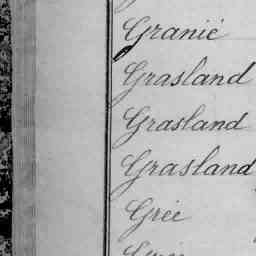 Granié
Grasland
Grasland
Grasland
Grée